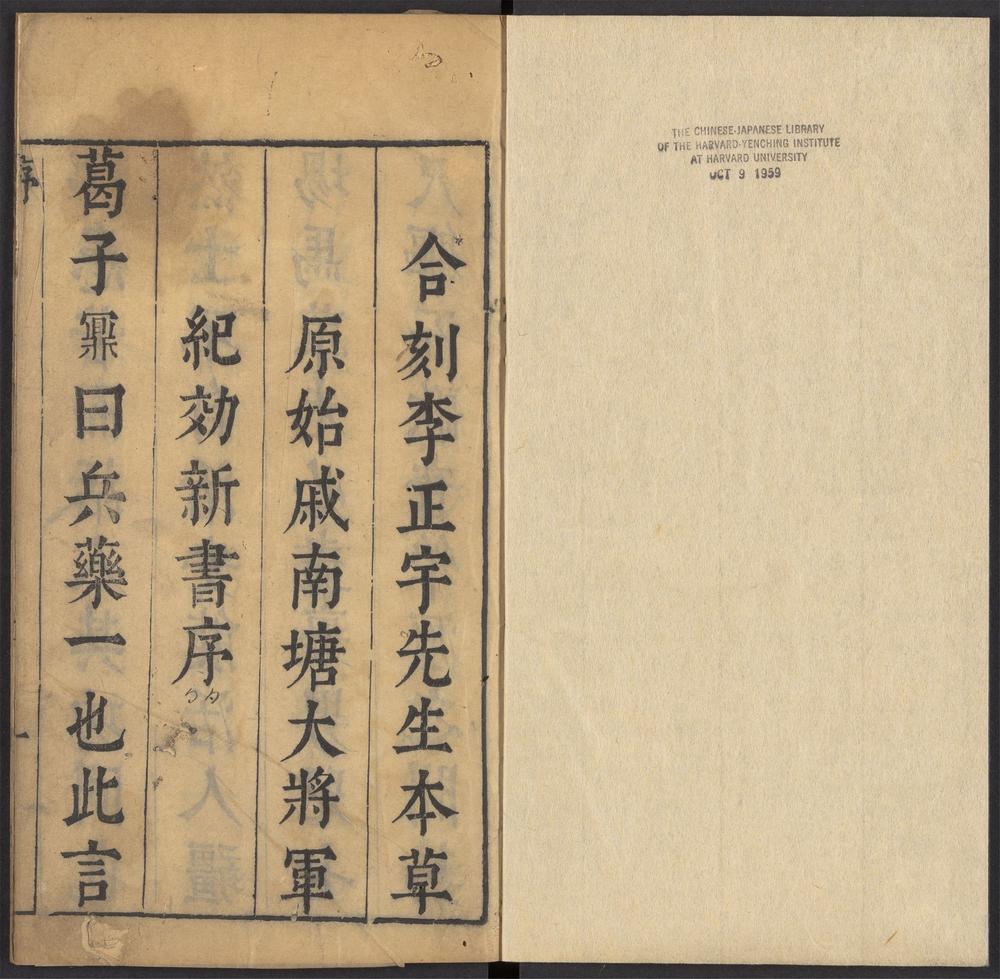 合刻李正宇先生本草
原始戚南塘大將軍
紀効新書序
葛子鼏曰兵藥一也此言
序
一
THE CHINESE-JAPANESE LIBRARY
OF THE HARVARD-YENCHING INSTITUTE
AT HARVARD UNIVERSITY
OCT 9 1959